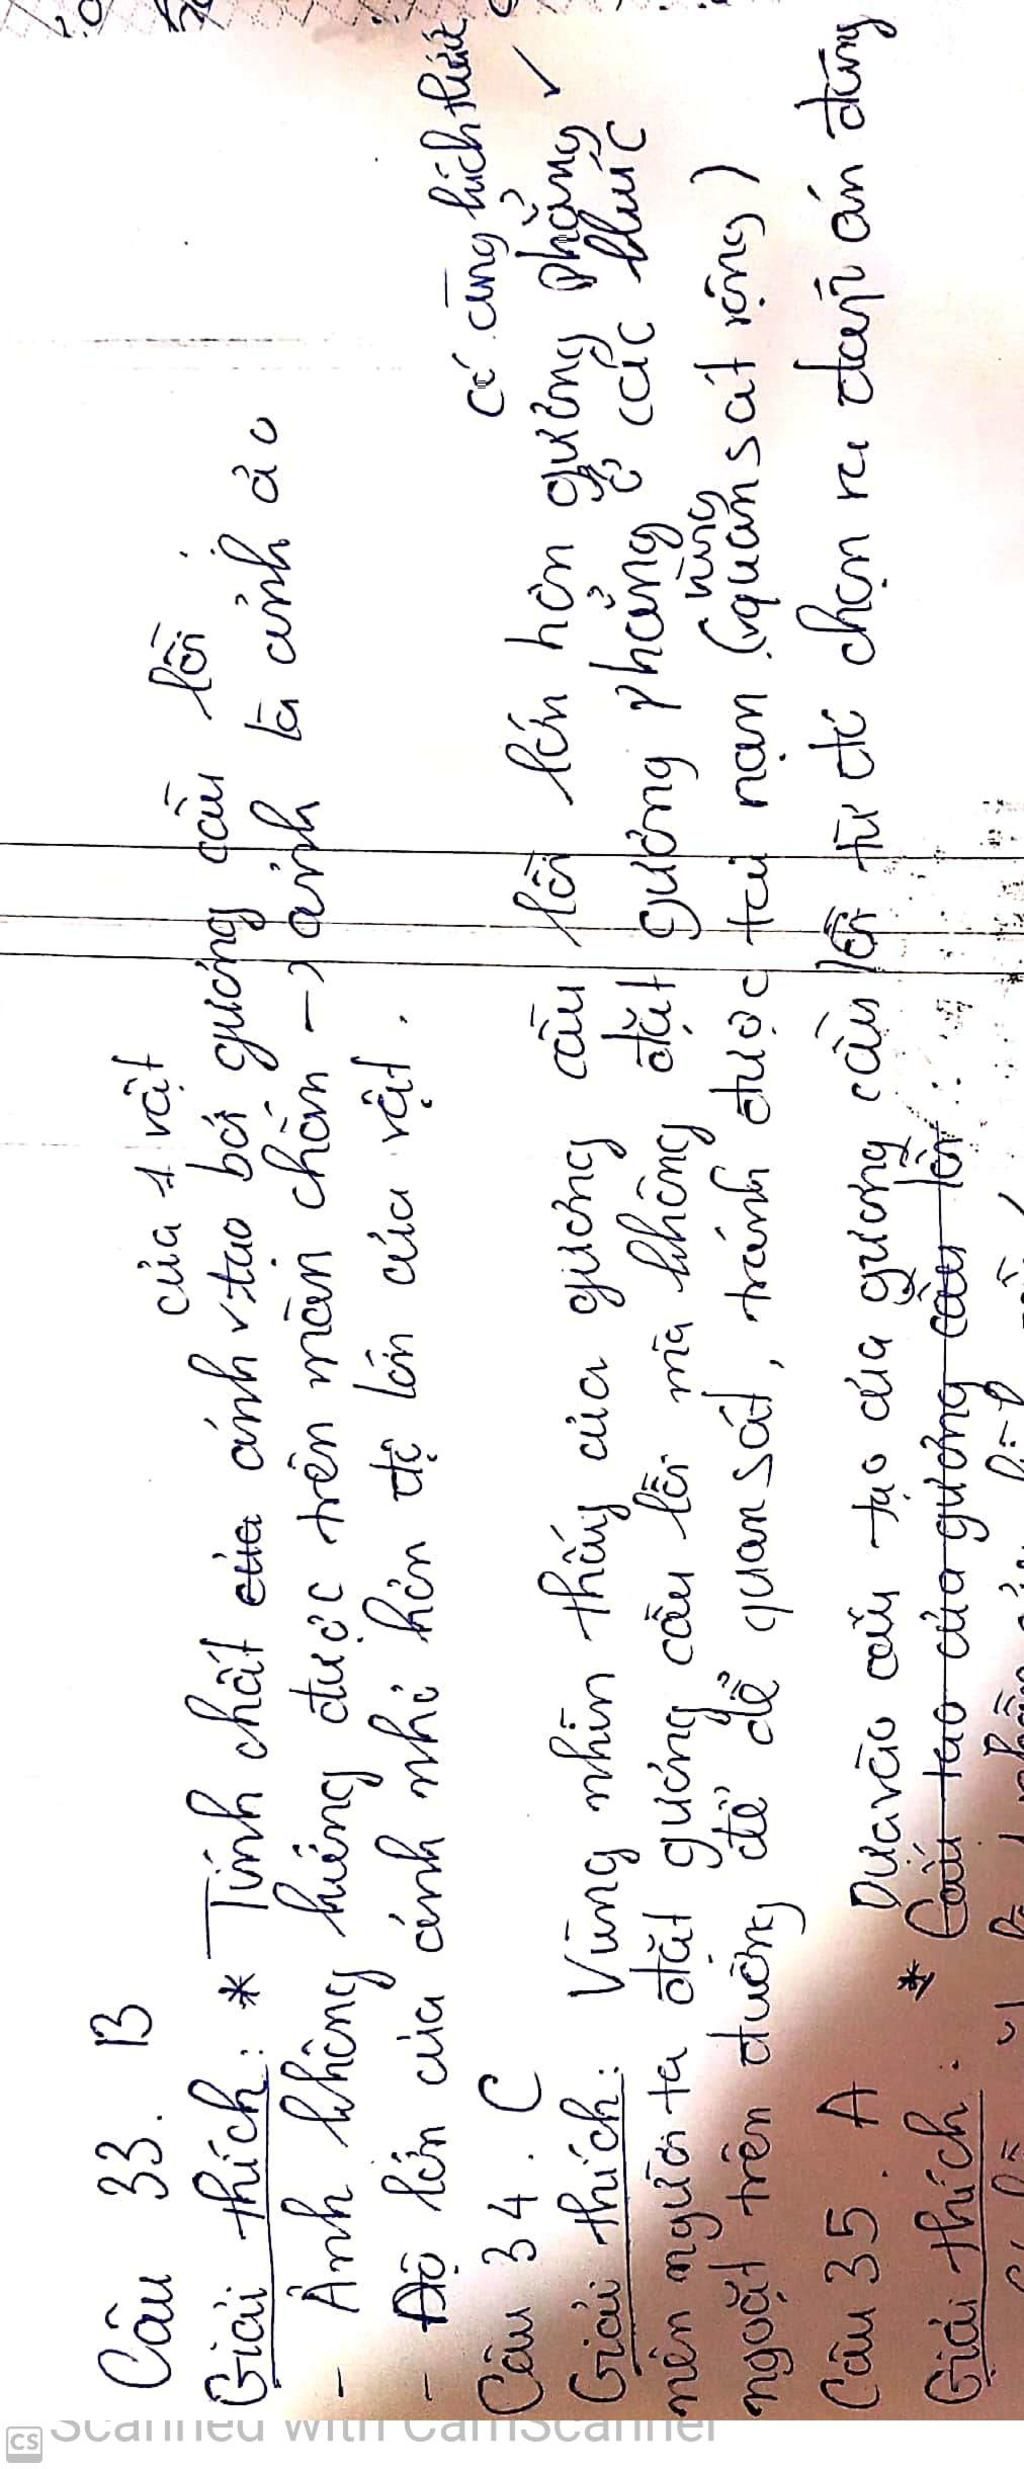 Câu 33. B
của 1 vật
Giải thích: * Tính chất của ảnh tạo bởi gương cầu lồi
- Ảnh không hứng được trên màn chắn → ảnh là ảnh ảo
- Độ lớn của ảnh nhỏ hơn độ lớn của vật.
Câu 34. C
có cùng kích thước
Giải thích: Vùng nhìn thấy của gương cầu lồi lớn hơn gương phẳng
nên người ta đặt gương cầu lồi mà không đặt gương phẳng ở các khúc
vùng
ngoặt trên đường để dễ quan sát, tránh được tai nạn (quan sát rộng)
Câu 35. A
Giải thích: Dựa vào cấu tạo của gương cầu lồi từ đó chọn ra đáp án đúng
* Cấu tạo của gương cầu lồi
Scanned with CamScanner
CS